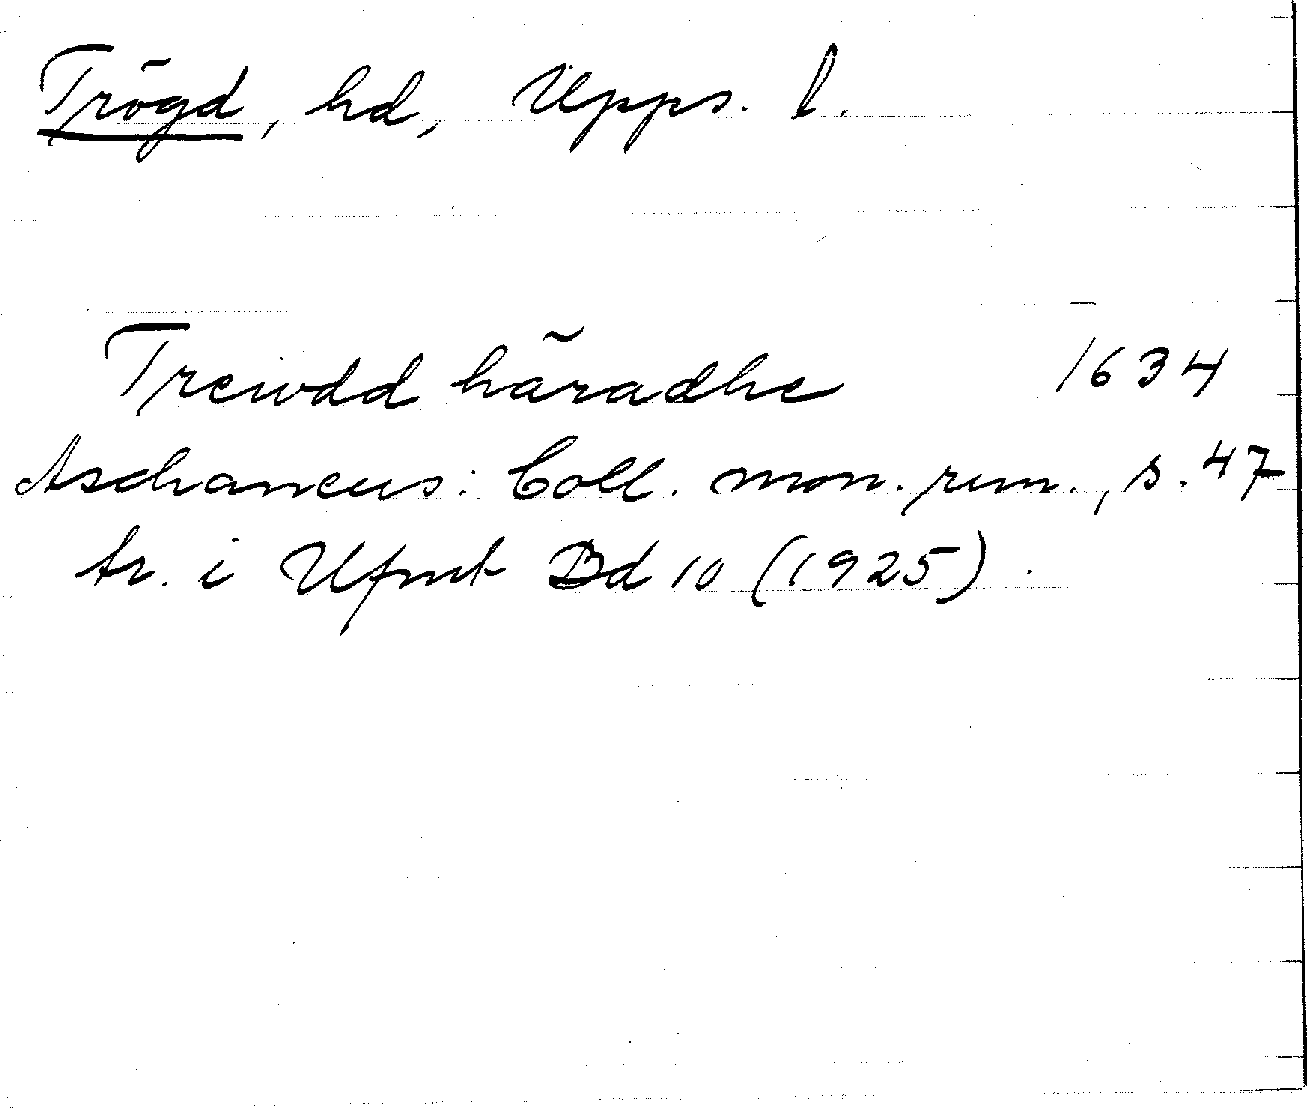 Trögd, hd, Upps. l.
Treiwdd häradhe 1634
Aschaneus: Coll. mon. run., s. 47
tr. i Ufmt Bd 10 (1925).